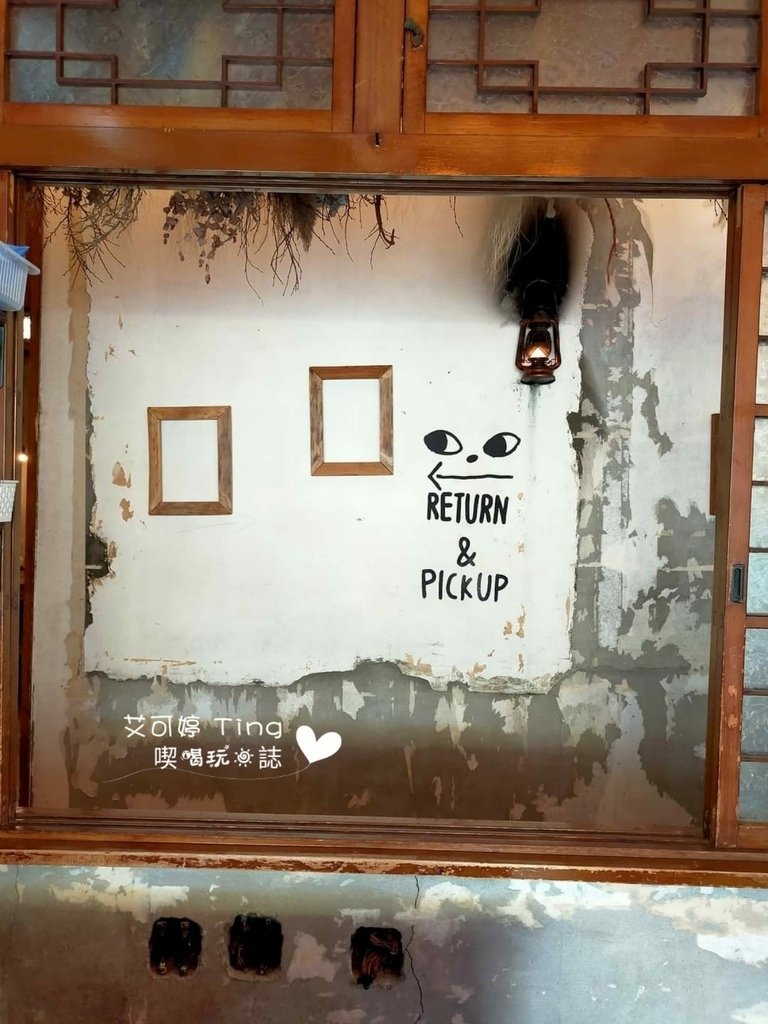 RETURN
&
PICKUP
艾可婷 Ting
喫喝玩樂誌